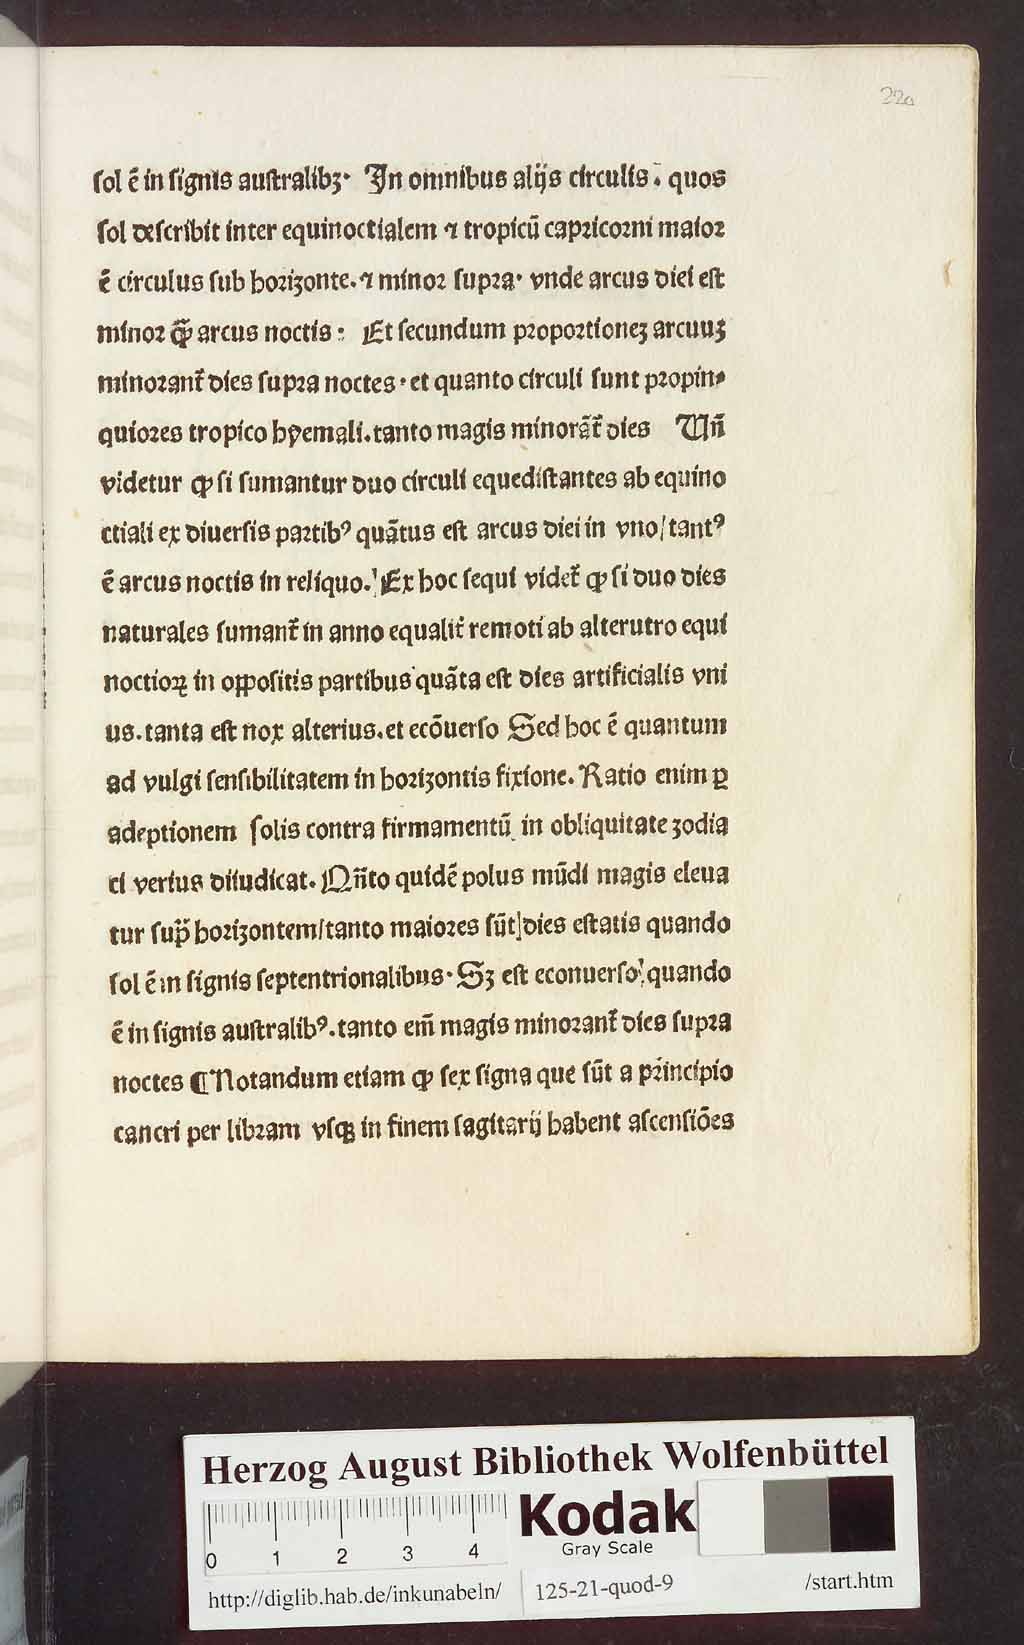 220
sol ē in signis australibꝫ· In omnibus alijs circulis. quos
sol describit inter equinoctialem ⁊ tropicū capricorni maior
ē circulus sub horizonte. ⁊ minor supra· vnde arcus diei est
minor ꝙ̄ arcus noctis: Et secundum proportioneꝫ arcuuꝫ
minorant̄ dies supra noctes· et quanto circuli sunt propin⸗
quiores tropico hyemali. tanto magis minorāt̄ dies Vñ
videtur ꝙ si sumantur duo circuli equedistantes ab equino
ctiali ex diuersis partibꝰ quātus est arcus diei in vno/ tantꝰ
ē arcus noctis in reliquo. Ex hoc sequi videt̄ ꝙ si duo dies
naturales sumant̄ in anno equalit̄ remoti ab alterutro equi
noctioꝝ in oppositis partibus quāta est dies artificialis vni
us. tanta est nox alterius. et ecōuerso Sed hoc ē quantum
ad vulgi sensibilitatem in horizontis fixione. Ratio enim ꝑ
adeptionem solis contra firmamentū in obliquitate zodia
ci verius diiudicat. Qñto quidē polus mūdi magis eleua
tur sup̄ horizontem/ tanto maiores sūt dies estatis quando
sol ē in signis septentrionalibus· Sꝫ est econuerso quando
ē in signis australibꝰ. tanto em̄ magis minorant̄ dies supra
noctes ¶ Notandum etiam ꝙ sex signa que sūt a principio
cancri per libram vsqꝫ in finem sagitarij habent ascensiōes
Herzog August Bibliothek Wolfenbüttel
0 1 2 3 4
Kodak
Gray Scale
http://diglib.hab.de/inkunabeln/ 125-21-quod-9 /start.htm